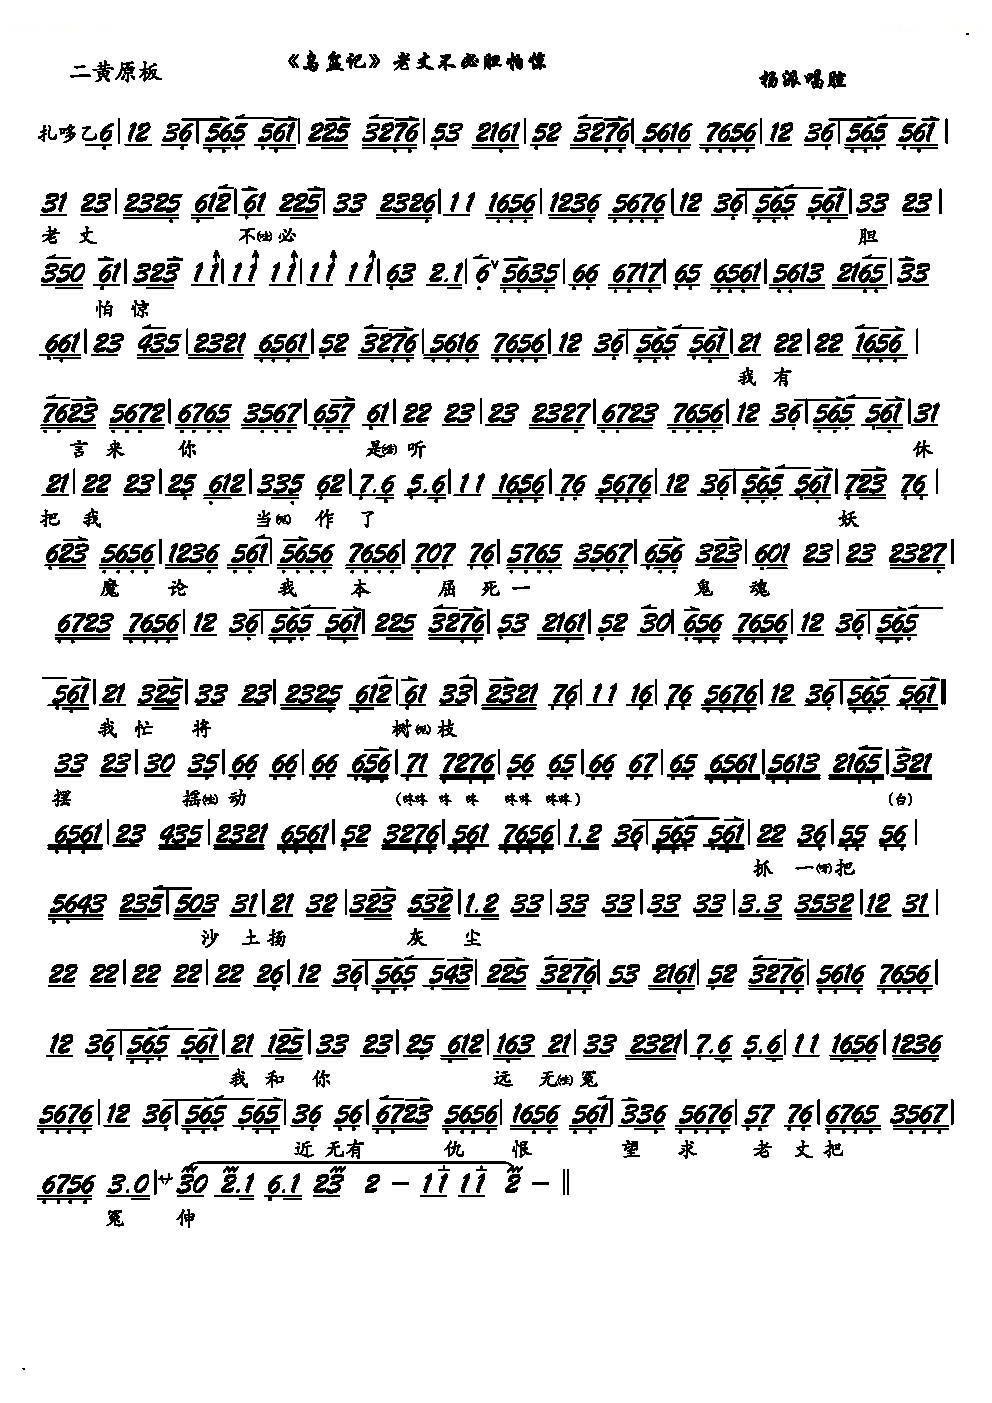 《乌盆记》老丈不必胆怕惊
二黄原板
杨派唱腔
扎哆乙6|12 36|565 561|225 3276|53 2161|52 3276|5616 7656|12 36|565 561|
31 23|2325 612|61 225|33 2326|11 1656|1236 5676|12 36|565 561|33 23|
老 丈 不 必 胆
350 61|323 11|11 11|11 11|63 2.1|6 5635|66 6717|65 6561|5613 2165|33
怕 惊
661|23 435|2321 6561|52 3276|5616 7656|12 36|565 561|21 22|22 1656|
我 有
7623 5672|6765 3567|657 61|22 23|23 2327|6723 7656|12 36|565 561|31
言 来 你 是 听 休
21|22 23|25 612|335 62|7.6 5.6|11 1656|76 5676|12 36|565 561|723 76|
把 我 当 作 了 妖
623 5656|1236 561|5656 7656|707 76|5765 3567|656 323|601 23|23 2327|
魔 论 我 本 屈 死 一 鬼 魂
6723 7656|12 36|565 561|225 3276|53 2161|52 30|656 7656|12 36|565
561|21 325|33 23|2325 612|61 33|2321 76|11 16|76 5676|12 36|565 561|
我 忙 将 树 枝
33 23|30 35|66 66|66 656|71 7276|56 65|66 67|65 6561|5613 2165|321
摆 摇 动 (咚咚 咚 咚 咚咚 咚咚) (白)
6561|23 435|2321 6561|52 3276|561 7656|1.2 36|565 561|22 36|55 56|
抓 一 把
5643 235|503 31|21 32|323 532|1.2 33|33 33|33 33|3.3 3532|12 31|
沙 土 扬 灰 尘
22 22|22 22|22 26|12 36|565 543|225 3276|53 2161|52 3276|5616 7656|
12 36|565 561|21 125|33 23|25 612|163 21|33 2321|7.6 5.6|11 1656|1236
我 和 你 远 无 冤
5676|12 36|565 565|36 56|6723 5656|1656 561|336 5676|57 76|6765 3567|
近 无 有 仇 恨 望 求 老 丈 把
6756 3.0|30 2.1 6.1 23 2 - 11 11 2 - ‖
冤 伸